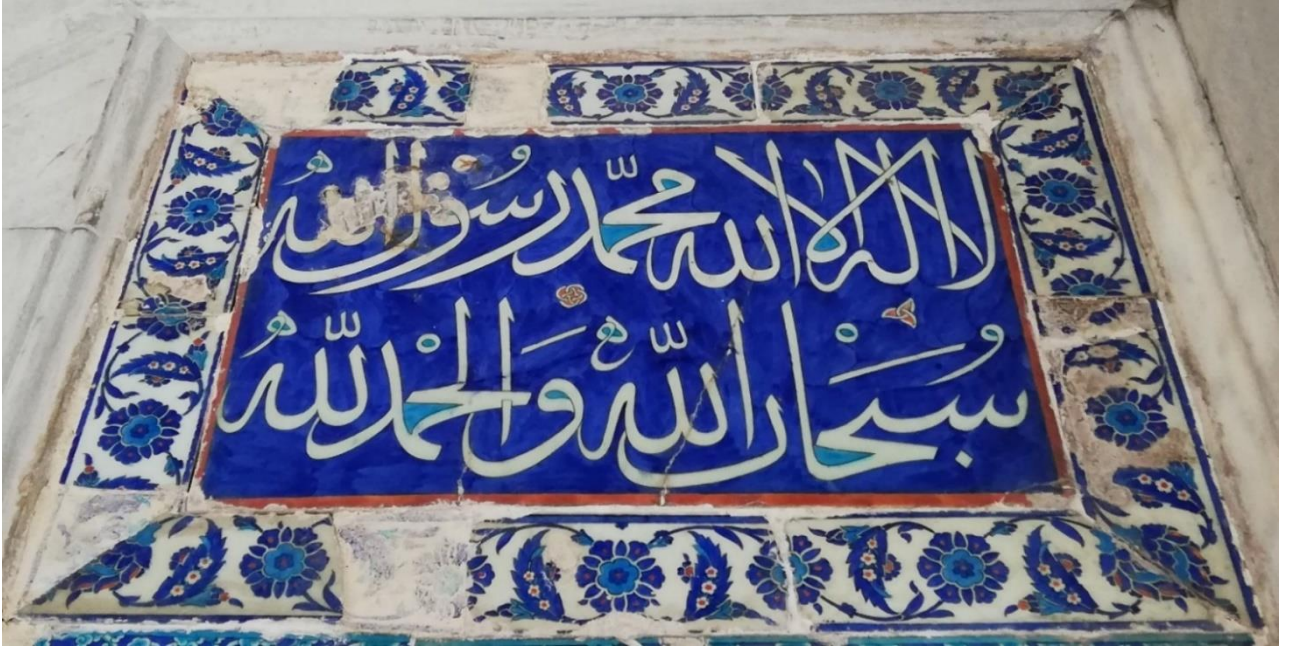 لا اله الا الله محمد رسول الله
سبحان الله والحمد لله